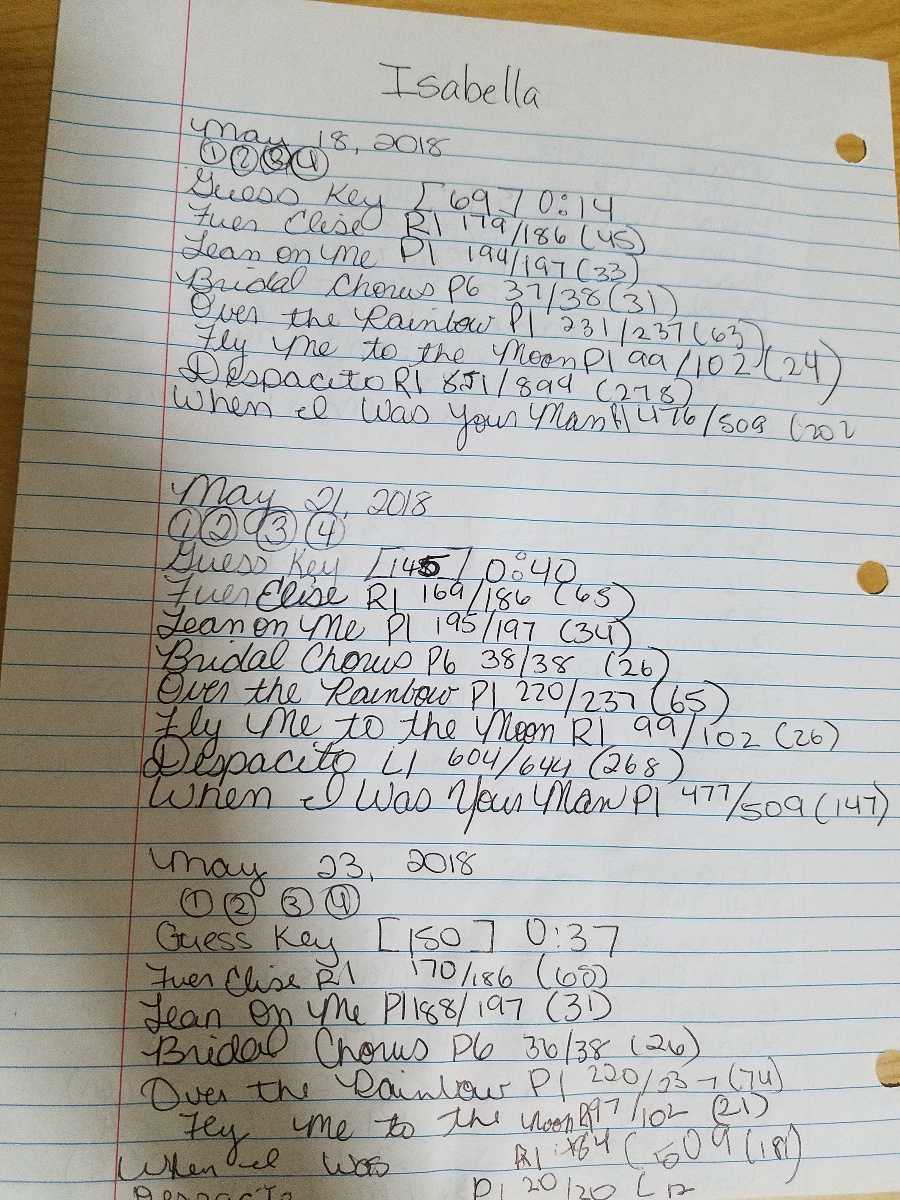 Isabella
May 18, 2018
① ② ③ ④
Guess Key [69] 0:14
Fuer Elise R1 179/186 (45)
Lean on Me P1 194/197 (33)
Bridal Chorus P6 37/38 (31)
Over the Rainbow P1 231/237 (63)
Fly Me to the Moon P1 99/102 (24)
Despacito R1 851/899 (278)
When I Was Your Man 476/509 (202
May 21, 2018
① ② ③ ④
Guess Key [145] 0:40
Fuer Elise R1 169/186 (65)
Lean on Me P1 195/197 (34)
Bridal Chorus P6 38/38 (26)
Over the Rainbow P1 220/237 (65)
Fly Me to the Moon R1 99/102 (26)
Despacito L1 604/644 (268)
When I Was Your Man P1 477/509 (147)
May 23, 2018
① ② ③ ④
Guess Key [150] 0:37
Fuer Elise R1 170/186 (60)
Lean On Me P1 188/197 (31)
Bridal Chorus P6 36/38 (26)
Over the Rainbow P1 220/237 (74)
Fly Me to the Moon 97/102 (21)
When I Was R1 509 (181)
P1 20/20